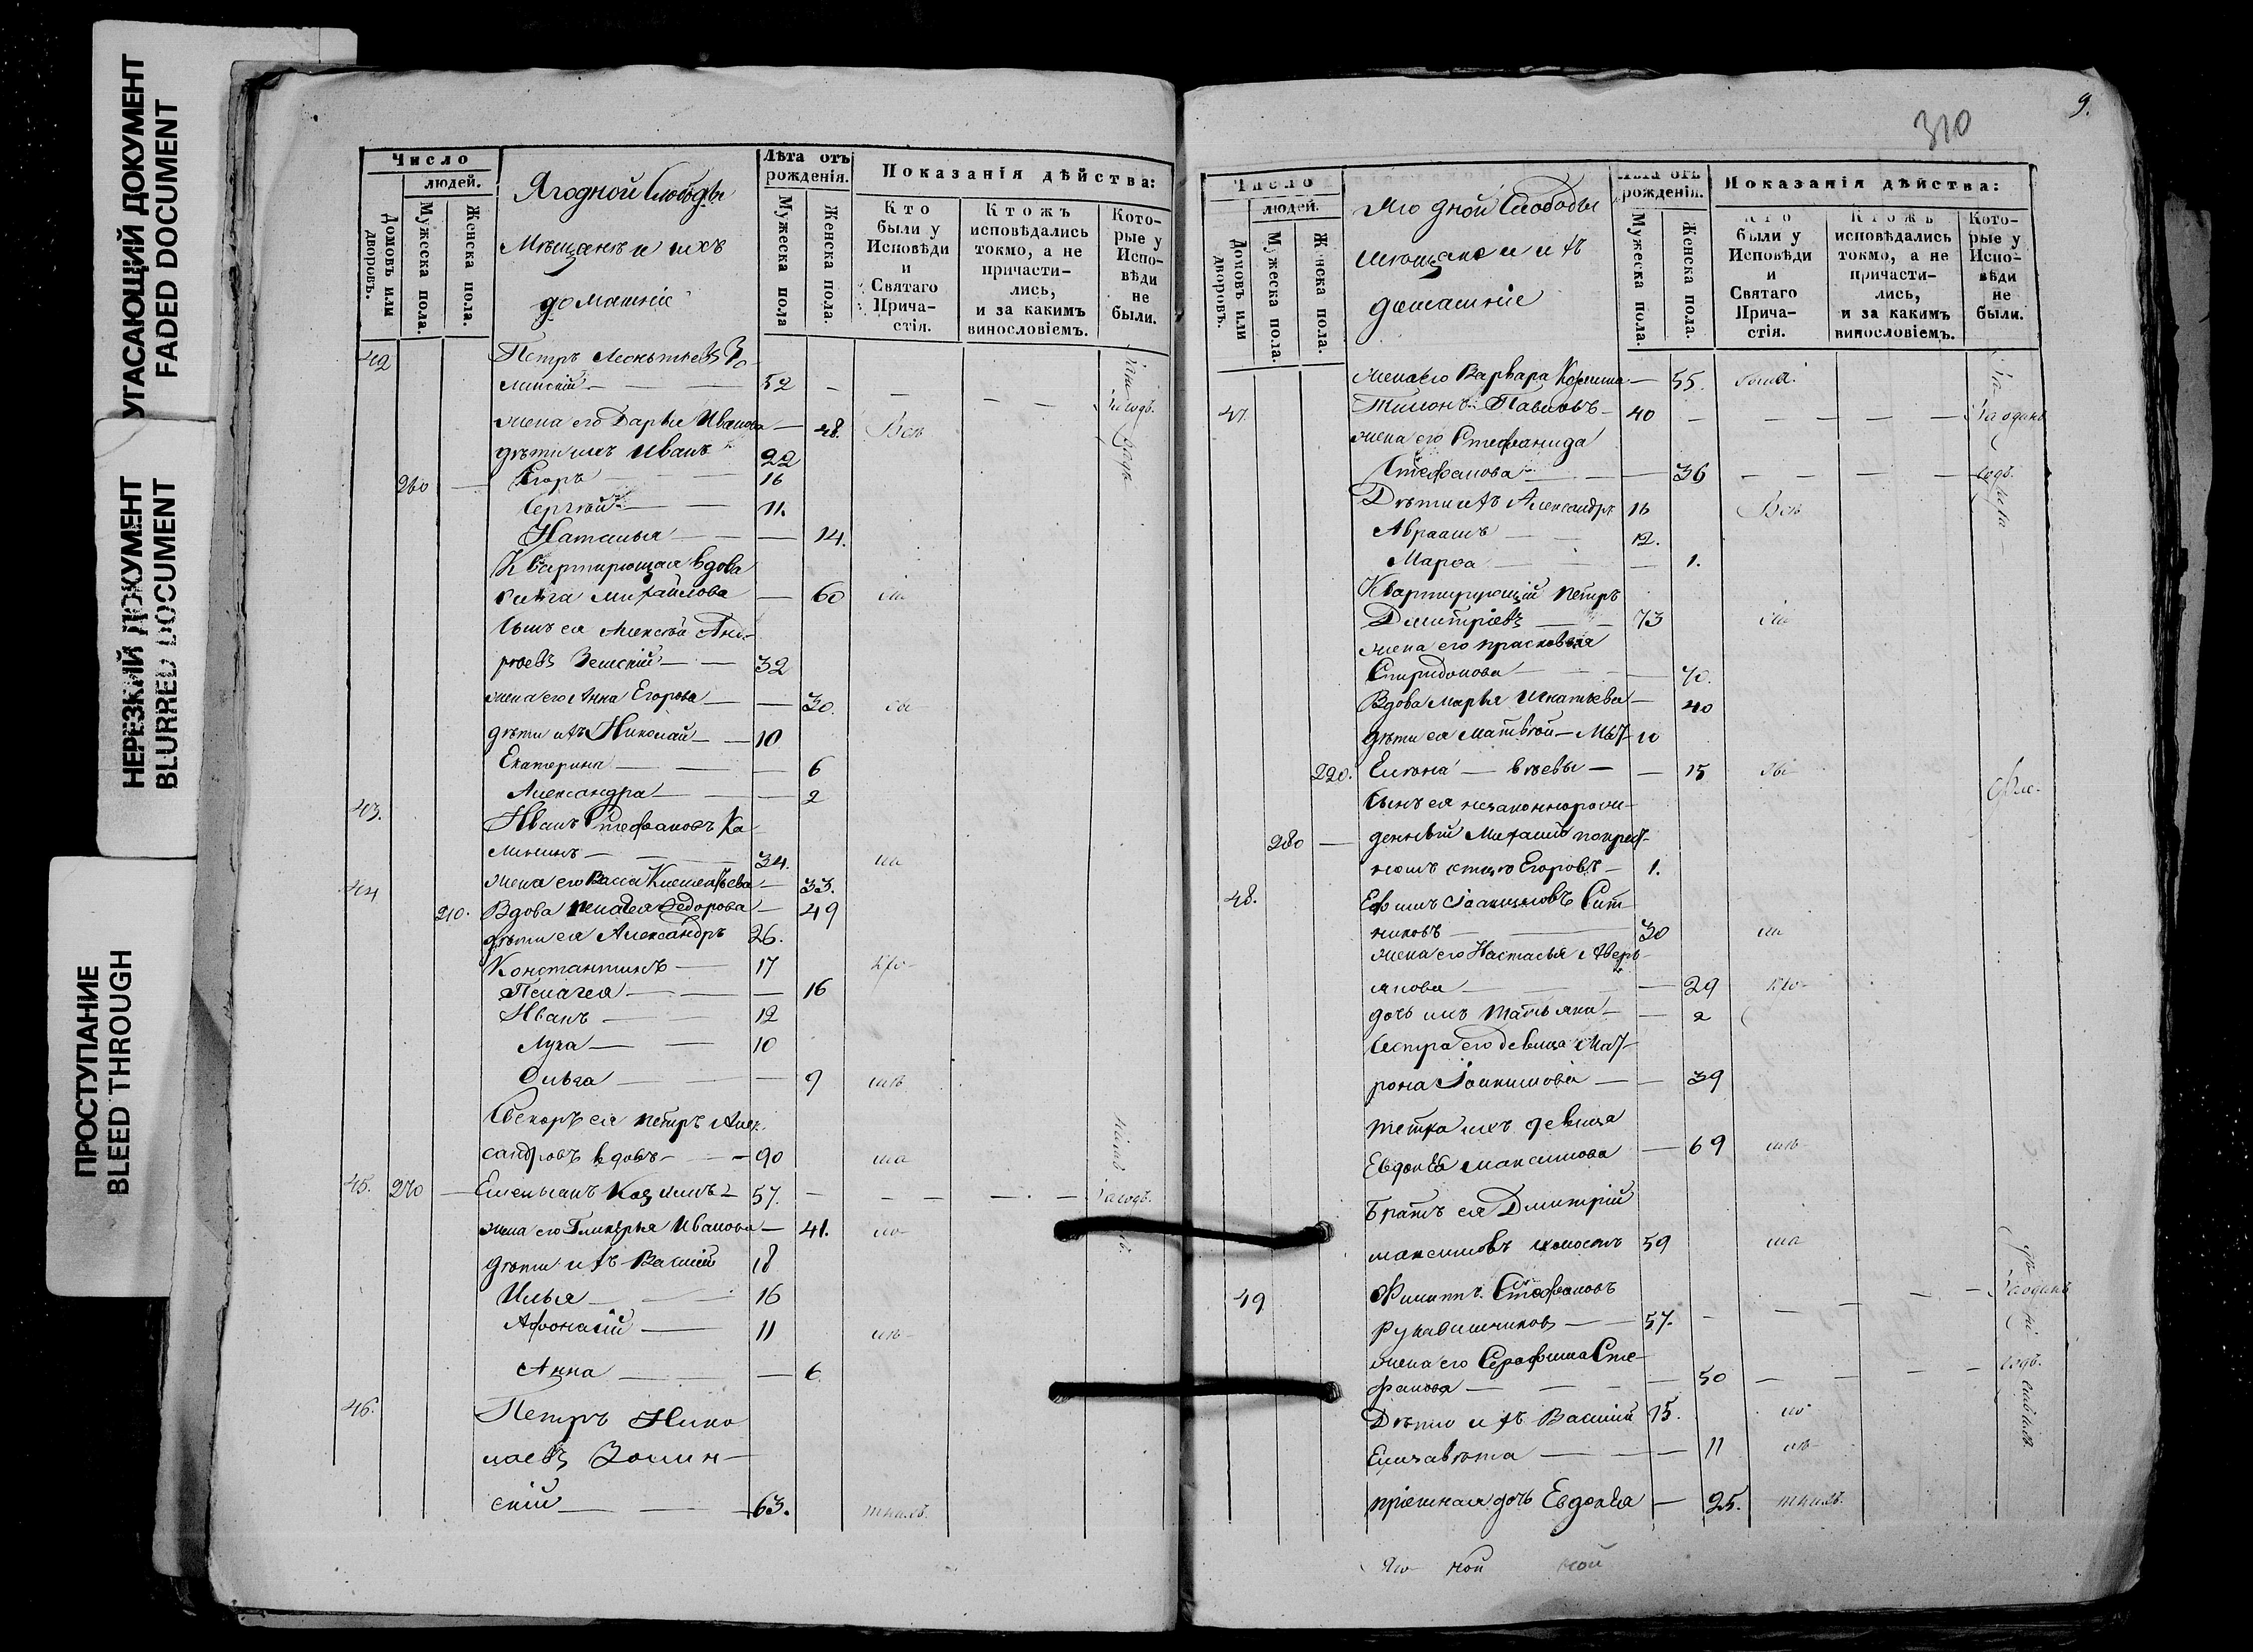 УГАСАЮЩИЙ ДОКУМЕНТ
FADED DOCUMENT
НЕРЕЗКИЙ ДОКУМЕНТ
BLURRED DOCUMENT
ПРОСТУПАНИЕ
BLEED THROUGH
Число
людей.
Домовъ или дворовъ.
Мужеска пола.
Женска пола.
Ягодной Слободы
Мѣщанъ и ихъ
домашніе
Лѣта отъ рожденія.
Мужеска пола
Женска пола.
Показанія дѣйства:
Кто были у Исповѣди и Святаго Прича- стія.
Ктожъ исповѣдались токмо, а не причасти- лись, и за какимъ винословіемъ.
Кото- рые у Испо- вѣди не были.
42 Петръ
52
жена его Дарья Иванова — 48. Всѣ
дѣти ихъ Иванъ 22
260 — Егоръ — 16
Сергѣй — 11.
Наталья — 14.
Квартирующая вдова
Михайлова — 60
сынъ ея Алексѣй Анд-
реевъ — 32
жена его Анна Егорова — 30.
дѣти ихъ Николай — 10
Екатерина — 6
Александра — 2
43. Иванъ Стефановъ Ка-
лининъ — 34.
жена его Васса — 33.
44 210. Вдова Пелагея Федорова — 49
дѣти ея Александръ 26.
Константинъ — 17
Пелагея — 16
Иванъ — 12
Лука — 10
Ольга — 9
Свекоръ ея Петръ Алек-
сандровъ вдовъ — 90
45. 270 — Емельянъ Козминъ — 57.
жена его Гликерья Иванова — 41.
дѣти ихъ Василій 18
Илья — 16
Афонасій — 11
Анна — 6
46. Петръ Нико
лаевъ Волин-
скій — 63.
310
9.
Число
людей.
Домовъ или дворовъ.
Мужеска пола.
Женска пола.
Ягодной Слободы
мѣщане и ихъ
домашніе
Лѣта отъ рожденія.
Мужеска пола.
Женска пола.
Показанія дѣйства:
Кто были у Исповѣди и Святаго Прича- стія.
Ктожъ исповѣдались токмо, а не причасти- лись, и за какимъ винословіемъ.
Кото- рые у Испо- вѣди не были.
жена его Варвара — 55.
47. Павловъ — 40
жена его Стефанида
Стефанова — 36
Дѣти ихъ Александръ 16 Всѣ
Авраамъ — 12.
Марѳа — 1.
Квартирующій Петръ
Дмитріевъ — 73
жена его Прасковья
Спиридонова — 70.
Вдова Марья Игнатьева — 40
дѣти ея Матвѣй — 10
220. Елена — 15
Сынъ ея незаконнорож-
280 — денный Михаилъ
Егоровъ — 1.
48. Ефимъ Іоакимовъ Сит-
никовъ — 30
жена его Настасья Аверь-
янова — 29
дочь ихъ Татьяна — 2
Сестра его девица Мат-
рона Іоакимова — 39
тетка ихъ девица
Евдокія Максимова — 69
Братъ ея Дмитрій
Максимовъ холостъ 59
49 Филиппъ Стефановъ
Рукавишниковъ — 57.
жена его Серафима Сте-
фанова — 50
Дѣти ихъ Василій 15.
Елизавета — 11
пріемная дочь Евдокія — 25.